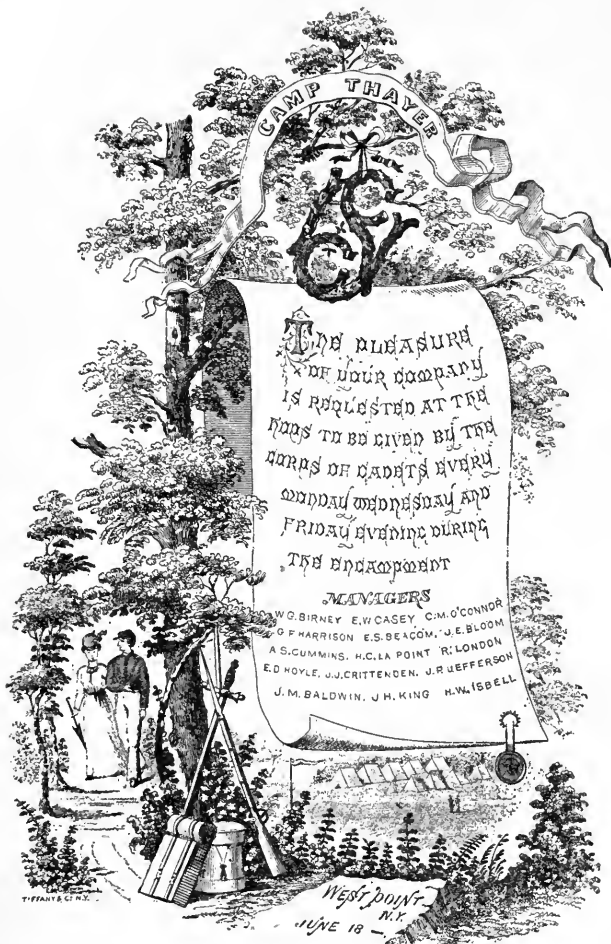 CAMP THAYER
THE PLEASURE
OF YOUR COMPANY
IS REQUESTED AT THE
HOPS TO BE GIVEN BY THE
CORPS OF CADETS EVERY
MONDAY WEDNESDAY AND
FRIDAY EVENING DURING
THE ENCAMPMENT
MANAGERS
W G. BIRNEY E. W CASEY C. M. O'CONNOR
G F HARRISON E. S. BEACOM. J. E. BLOOM
A S. CUMMINS. H. C. LA POINT R. LONDON
E. D HOYLE. J. J. CRITTENDEN. J. P. JEFFERSON
J. M. BALDWIN. J H. KING H. W. ISBELL
TIFFANY & Co N.Y.
WEST POINT
N.Y.
JUNE 18 —